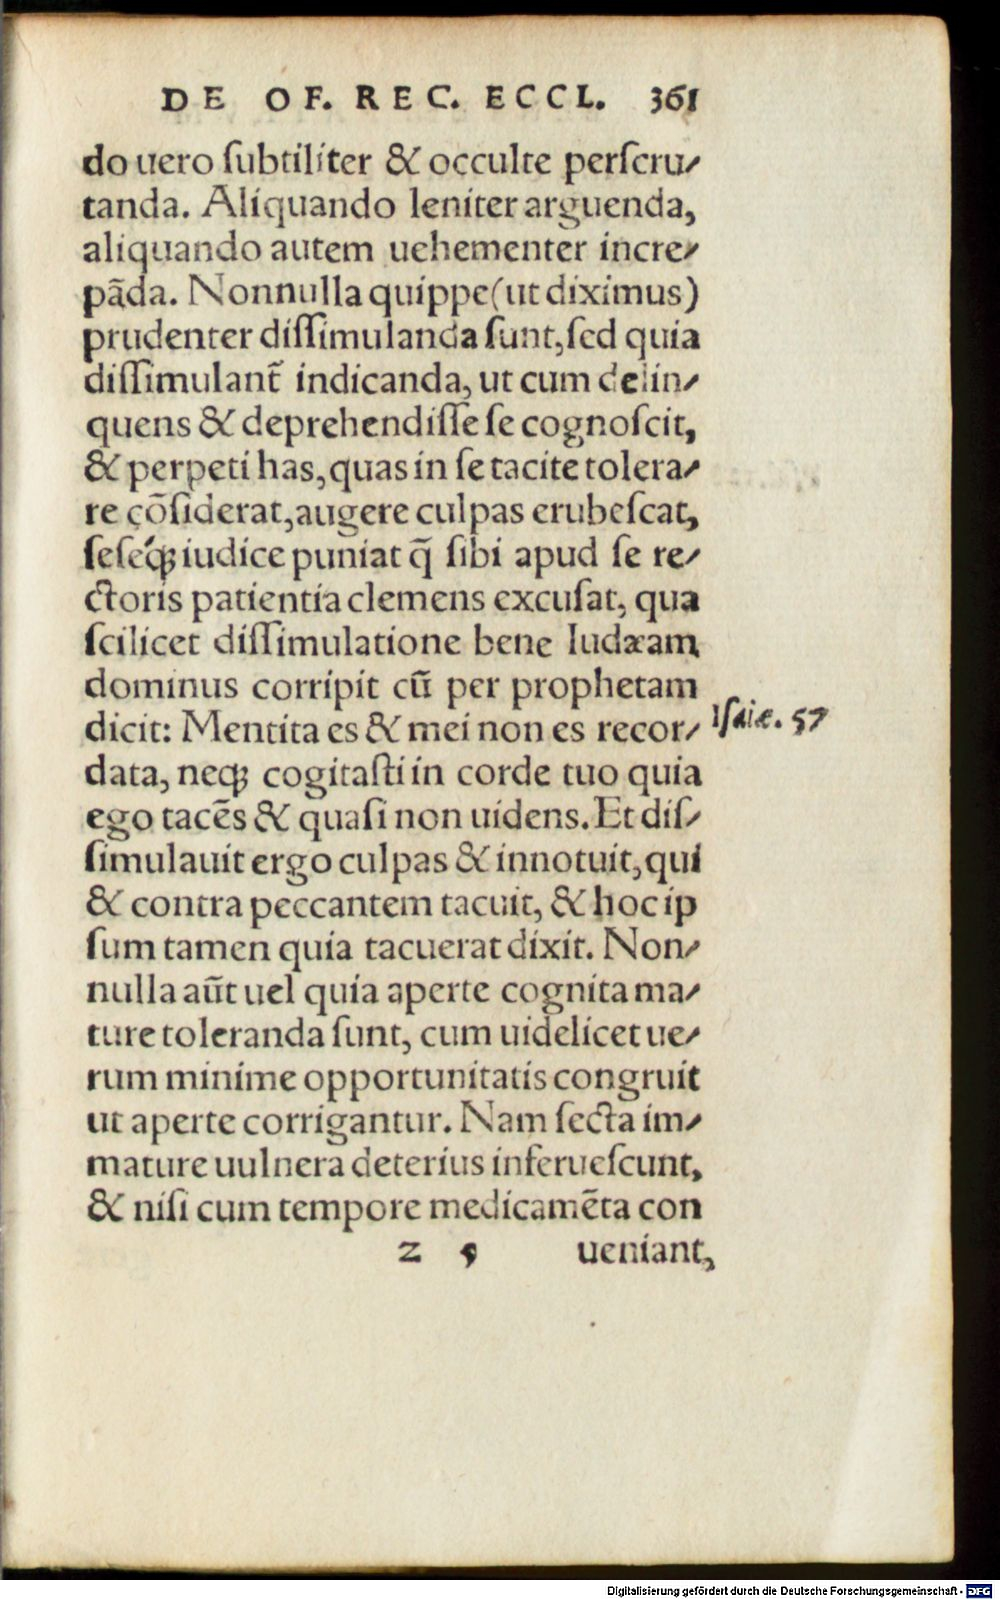 DE OF. REC. ECCL. 361
do uero ſubtiliter & occulte perſcru⸗
tanda. Aliquando leniter arguenda,
aliquando autem uehementer incre⸗
pãda. Nonnulla quippe (ut diximus)
prudenter diſſimulanda ſunt, ſed quia
diſſimulant̃ indicanda, ut cum delin⸗
quens & deprehendiſſe ſe cognoſcit,
& perpeti has, quas in ſe tacite tolera⸗
re cõſiderat, augere culpas erubeſcat,
ſeſeq́ꝫ iudice puniat q̃ ſibi apud ſe re⸗
ctoris patientia clemens excuſat, qua
ſcilicet diſſimulatione bene Iudæam
dominus corripit cũ per prophetam
dicit: Mentita es & mei non es recor⸗
Iſaiæ. 57
data, neqꝫ cogitaſti in corde tuo quia
ego tacẽs & quaſi non uidens. Et diſ⸗
ſimulauit ergo culpas & innotuit, qui
& contra peccantem tacuit, & hoc ip
ſum tamen quia tacuerat dixit. Non⸗
nulla aũt uel quia aperte cognita ma⸗
ture toleranda ſunt, cum uidelicet ue⸗
rum minime opportunitatis congruit
ut aperte corrigantur. Nam ſecta im⸗
mature uulnera deterius inferueſcunt,
& niſi cum tempore medicamẽta con
z 5 ueniant,
Digitalisierung gefördert durch die Deutsche Forschungsgemeinschaft - DFG